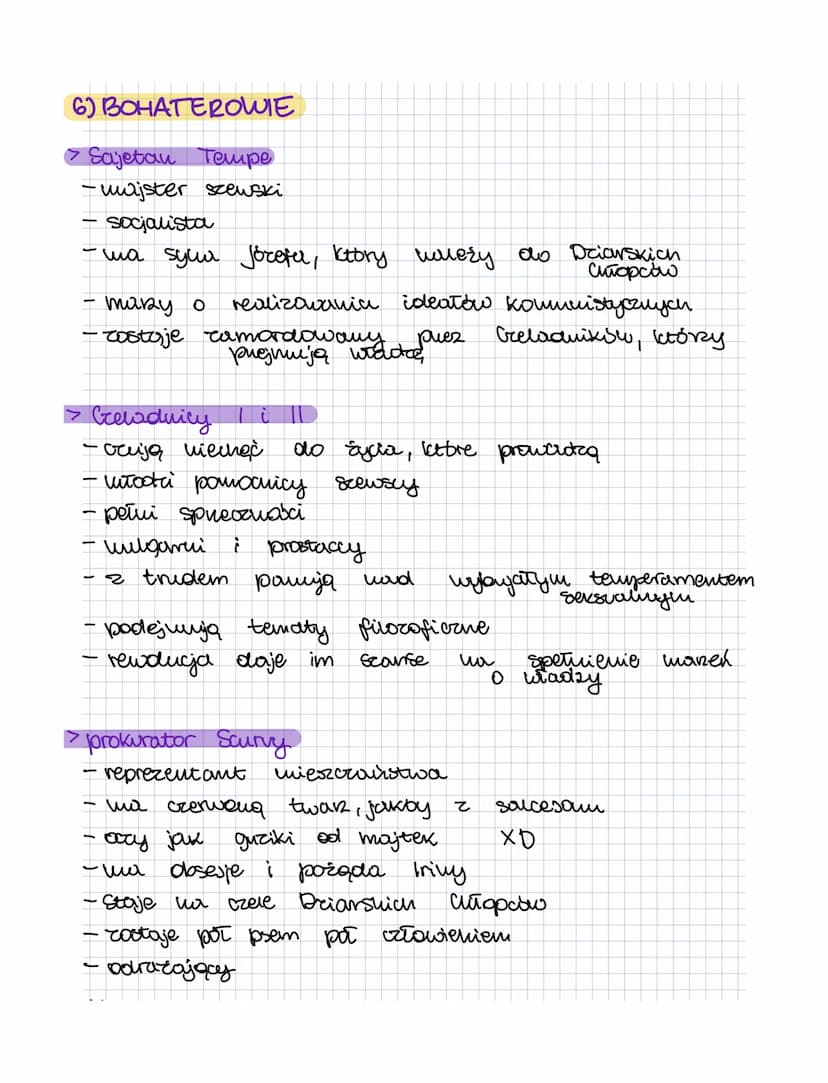 6) BOHATEROWIE
> Sajetan Tempe
- majster szewski
- socjalista
- ma syna Józefa, który należy do Dziarskich
Chłopców
- marzy o realizowaniu ideałów komunistycznych
- zostaje zamordowany przez Czeladników, którzy
przejmują władzę
> Czeladnicy I i II
- czują niechęć do życia, które prowadzą
- młodzi pomocnicy szewscy
- pełni sprzeczności
- wulgarni i prostaccy
- z trudem panują nad wybujałym temperamentem
seksualnym
- podejmują tematy filozoficzne
- rewolucja daje im szanse na spełnienie marzeń
o władzy
> prokurator Scurvy
- reprezentant mieszczaństwa
- ma czerwoną twarz, jakby z salcesonu
- oczy jak guziki od majtek XD
- ma obsesje i pożąda Iriny
- Staje na czele Dziarskich Chłopców
- zostaje pół psem pół człowiekiem
- odrażający